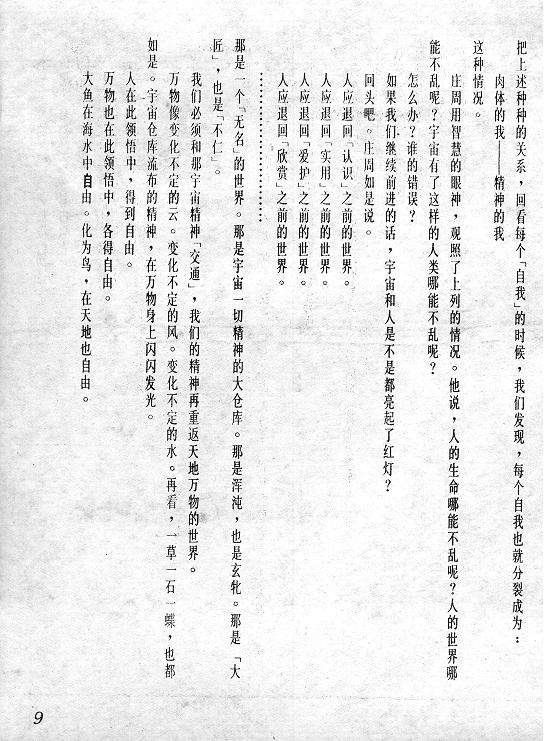 把上述种种的关系，回看每个「自我」的时候，我们发现，每个自我也就分裂成为：
肉体的我——精神的我
这种情况。
庄周用智慧的眼神，观照了上列的情况。他说，人的生命哪能不乱呢？人的世界哪
能不乱呢？宇宙有了这样的人类哪能不乱呢？
怎么办？谁的错误？
如果我们继续前进的话，宇宙和人是不是都亮起了红灯？
回头吧。庄周如是说。
人应退回「认识」之前的世界。
人应退回「实用」之前的世界。
人应退回「爱护」之前的世界。
人应退回「欣赏」之前的世界。
…………………………
那是一个「无名」的世界。那是宇宙一切精神的大仓库。那是浑沌，也是玄牝。那是「大
匠」，也是「不仁」。
我们必须和那宇宙精神「交通」，我们的精神再重返天地万物的世界。
万物像变化不定的云。变化不定的风。变化不定的水。再看，一草一石一蝶，也都
如是。宇宙仓库流布的精神，在万物身上闪闪发光。
人在此领悟中，得到自由。
万物也在此领悟中，各得自由。
大鱼在海水中自由。化为鸟，在天地也自由。
9